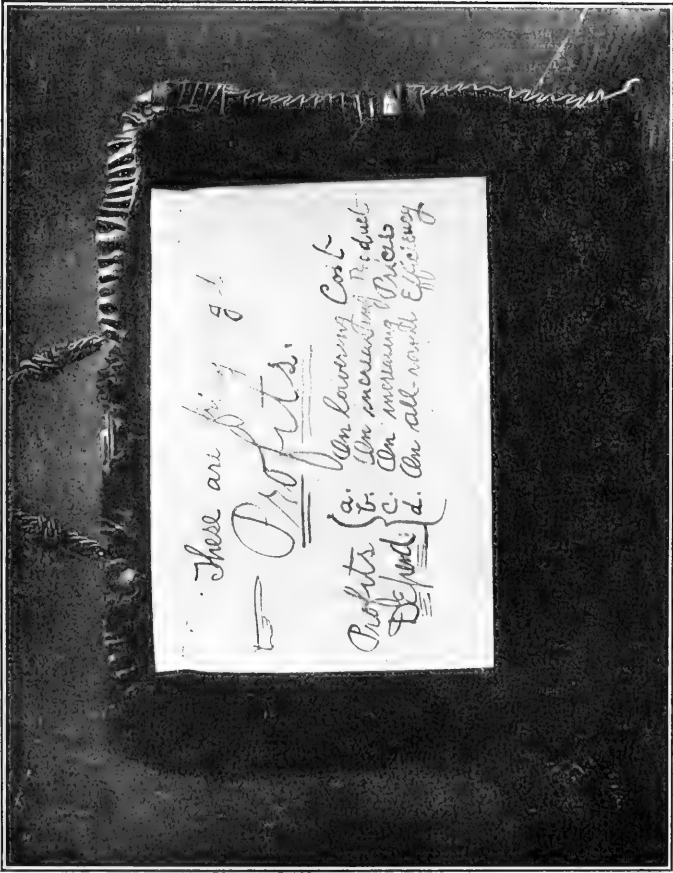 These are
Profits.
Profits Depend:
a. On lowering Cost
b. On increasing Product
c. On increasing Prices
d. On all-round Efficiency